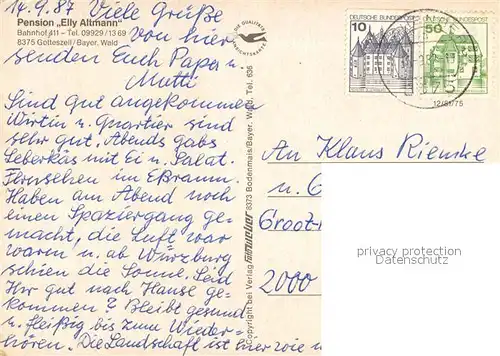 14.9.87 Viele Grüße
Pension „Elly Altmann"
von hier
Bahnhof 411 – Tel. 09929/1369
8375 Gotteszell/Bayer. Wald
senden Euch Papa u.
Mutti
Sind gut angekommen
Wirtin u. Quartier sind
sehr gut, Abends gabs
Leberkäs mit Ei u. Salat.
Fernsehen im Eßraum.
Haben am Abend noch
einen Spaziergang ge-
macht, die Luft war
waren u. ab Würzburg
schien die Sonne. Seid
Ihr gut nach Hause ge-
kommen? Bleibt gesund
u. fleißig bis zum Wieder-
hören. Die Landschaft ist hier wie
DIE QUALITÄTS
ANSICHTSKARTE
Copyright bei Verlag 8373 Bodenmais/Bayer. Wald, Tel. 636
DEUTSCHE BUNDESPOST
10
DEUTSCHE BUNDESPOST
50
12/51/75
An Klaus
u. G
2000
privacy protection
Datenschutz